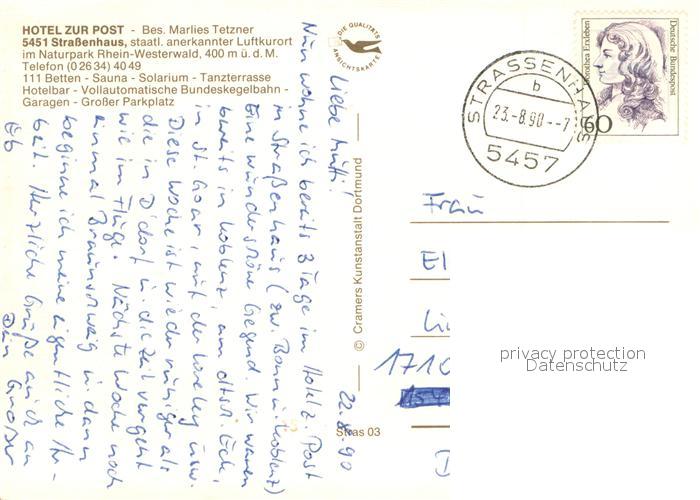 HOTEL ZUR POST - Bes. Marlies Tetzner
5451 Straßenhaus, staatl. anerkannter Luftkurort
im Naturpark Rhein-Westerwald, 400 m ü. d. M.
Telefon (0 26 34) 40 49
111 Betten - Sauna - Solarium - Tanzterrasse
Hotelbar - Vollautomatische Bundeskegelbahn -
Garagen - Großer Parkplatz
DIE QUALITÄTS
ANSICHTSKARTE
22.8.90
Liebe Mutti!
Nun wohne ich bereits 3 Tage im Hotel z. Post
in Straßenhaus (zw. Bonn u. Koblenz)
Eine wunderschöne Gegend. Wir waren
bereits in Koblenz, am dtsch. Eck,
in St. Goar, mit der Loreley usw.
Diese Woche ist wieder ruhiger als
die in D'dorf u. die Zeit vergeht
wie im Fluge. Nächste Woche noch
einmal Braunschweig u. dann
beginne ich meine eigentliche Ar-
beit. Herzliche Grüße auch an
Eb
Dein Großer
© Cramers Kunstanstalt Dortmund
Stras 03
STRASSENHAUS
b
23.-8.90--7
5457
Dorothea Erxleben
Deutsche Bundespost
60
Frau
El
Li
1710
D
privacy protection
Datenschutz